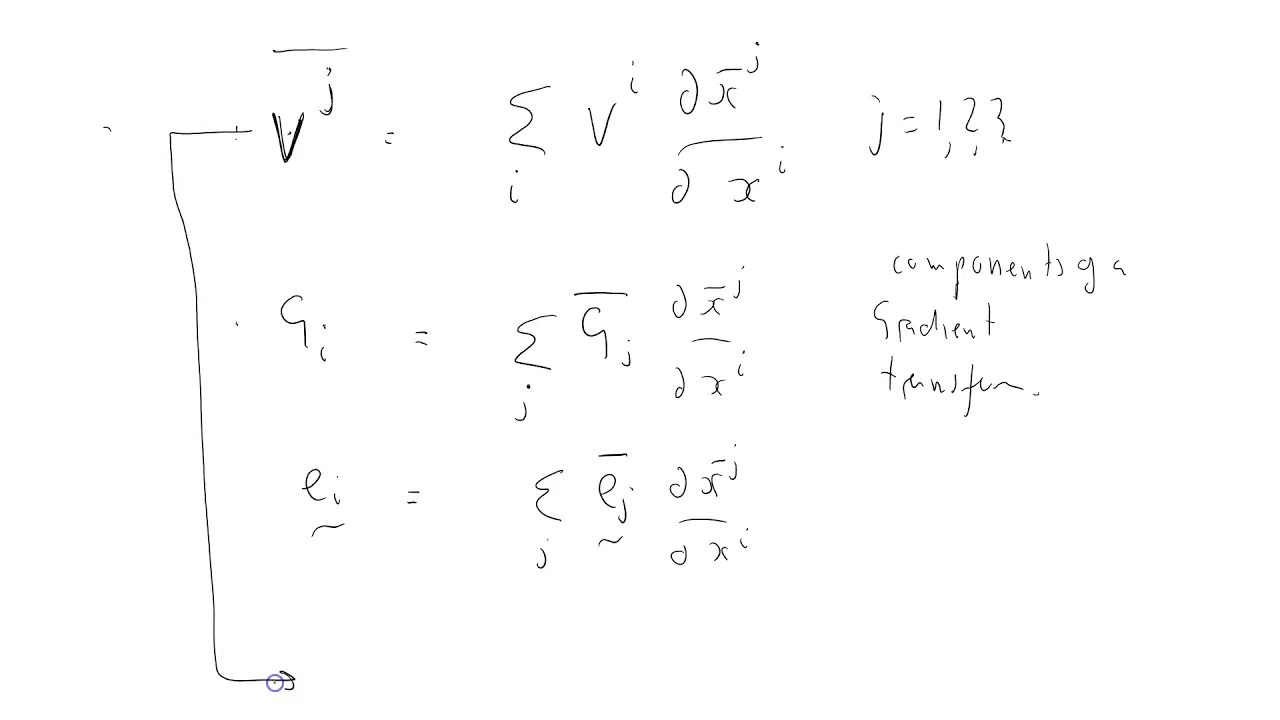 \overline{V^j} = \sum_i V^i \frac{\partial \bar{x}^j}{\partial x^i} j = 1, 2, 3
G_i = \sum_j \overline{G}_j \frac{\partial \bar{x}^j}{\partial x^i}
components of a
Gradient
transform.
\underset{\sim}{e_i} = \sum_j \underset{\sim}{\overline{e}_j} \frac{\partial \bar{x}^j}{\partial x^i}